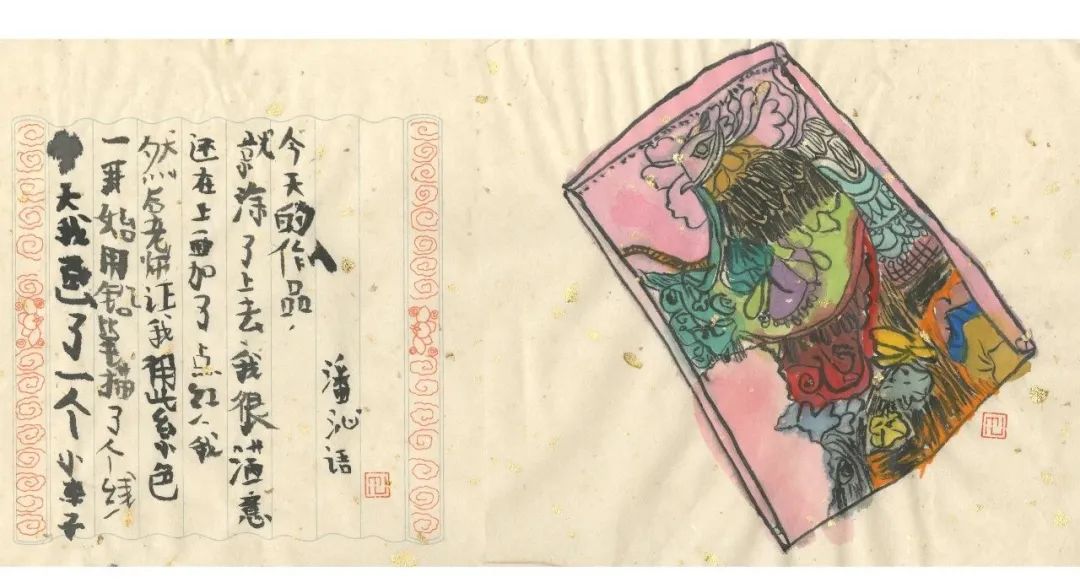 今天我画了一个小子
一开始用铅笔描了个线
然后老师让我用紫色
还在上面加了点红，我
就涂了上去，我很满意
今天的作品，
潘沁语